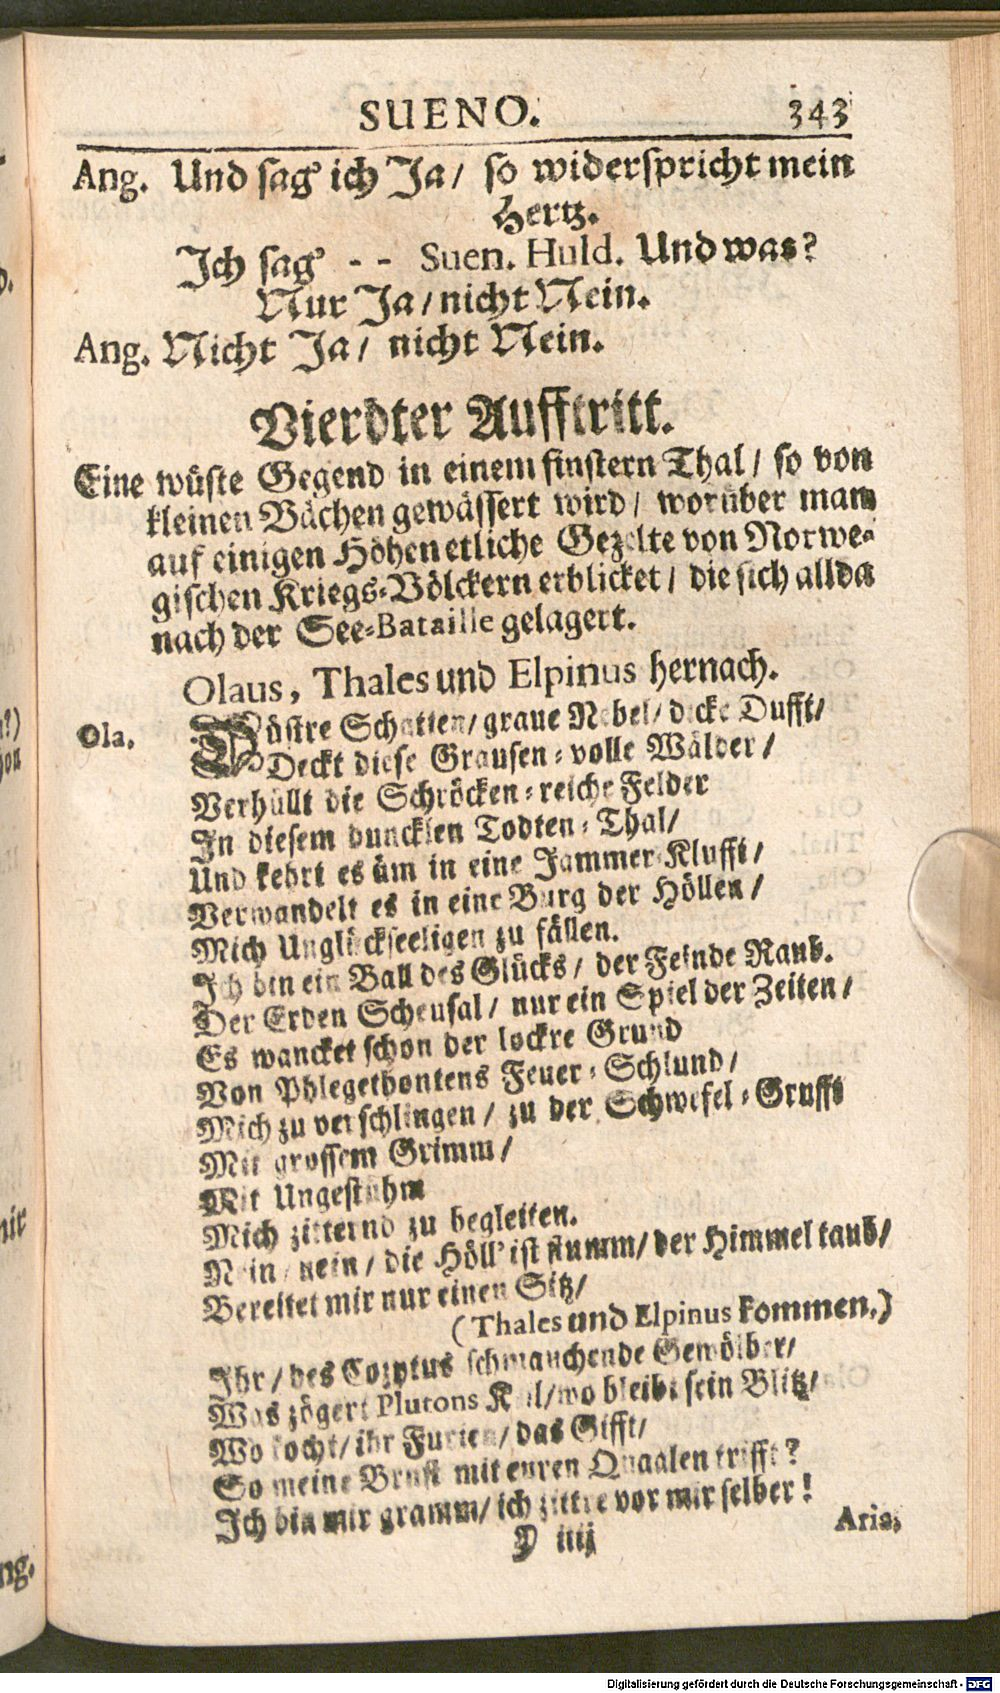 SUENO. 343
Ang. Und sag' ich Ja/ so widerspricht mein
Hertz.
Ich sag' - - Suen. Huld. Und was?
Nur Ja/ nicht Nein.
Ang. Nicht Ja/ nicht Nein.
Vierdter Aufftritt.
Eine wüste Gegend in einem finstern Thal/ so von
kleinen Bächen gewässert wird/ worüber man
auf einigen Höhen etliche Gezelte von Norwe-
gischen Kriegs-Völckern erblicket/ die sich allda
nach der See-Bataille gelagert.
Olaus, Thales und Elpinus hernach.
Ola. Düstre Schatten/ graue Nebel/ dicke Dufft/
Deckt diese Grausen-volle Wälder/
Verhüllt die Schröcken-reiche Felder
In diesem duncklen Todten-Thal/
Und kehrt es üm in eine Jammer-Klufft/
Verwandelt es in eine Burg der Höllen/
Mich Unglückseeligen zu fällen.
Ich bin ein Ball des Glücks/ der Feinde Raub.
Der Erden Scheusal/ nur ein Spiel der Zeiten/
Es wancket schon der lockre Grund
Von Phlegethontens Feuer-Schlund/
Mich zu verschlingen/ zu der Schwefel-Grufft
Mit grossem Grimm/
Mit Ungestühm
Mich zitternd zu begleiten.
Nein/ nein/ die Höll' ist stumm/ der Himmel taub/
Bereitet mir nur einen Sitz/
(Thales und Elpinus kommen.)
Ihr/ des Cozytus schmauchende Gewölber/
Was zögert Plutons Keil/ wo bleibt sein Blitz/
Wo kocht/ ihr Furien/ das Gifft/
So meine Brust mit euren Quaalen trifft?
Ich bin mir gramm/ ich zittre vor mir selber!
D iiij Aria.
ng.
Digitalisierung gefördert durch die Deutsche Forschungsgemeinschaft - DFG